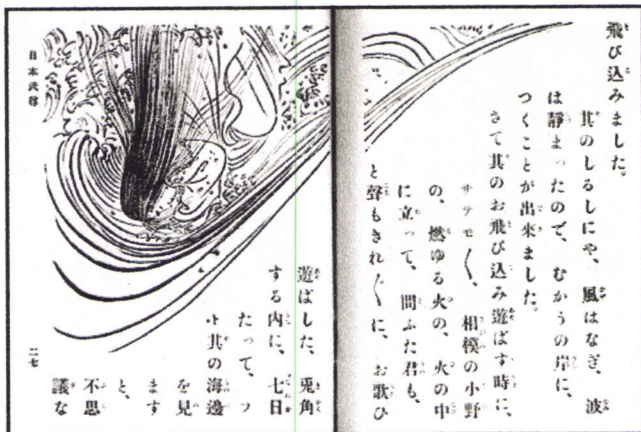 飛び込みました。
其のしるしにや、風はなぎ、波
は靜まったので、むかうの岸に、
つくことが出來ました。
さて其のお飛び込み遊ばす時に、
サテモ〳〵、相模の小野
の、燃ゆる火の、火の中
に立って、問ふた君も、
と聲もきれ〴〵に、お歌ひ
遊ばした、兎角
する内に、七日
たって、フ
ト其の海邊
を見
ます
と、
不思
議な
日本武尊
二七